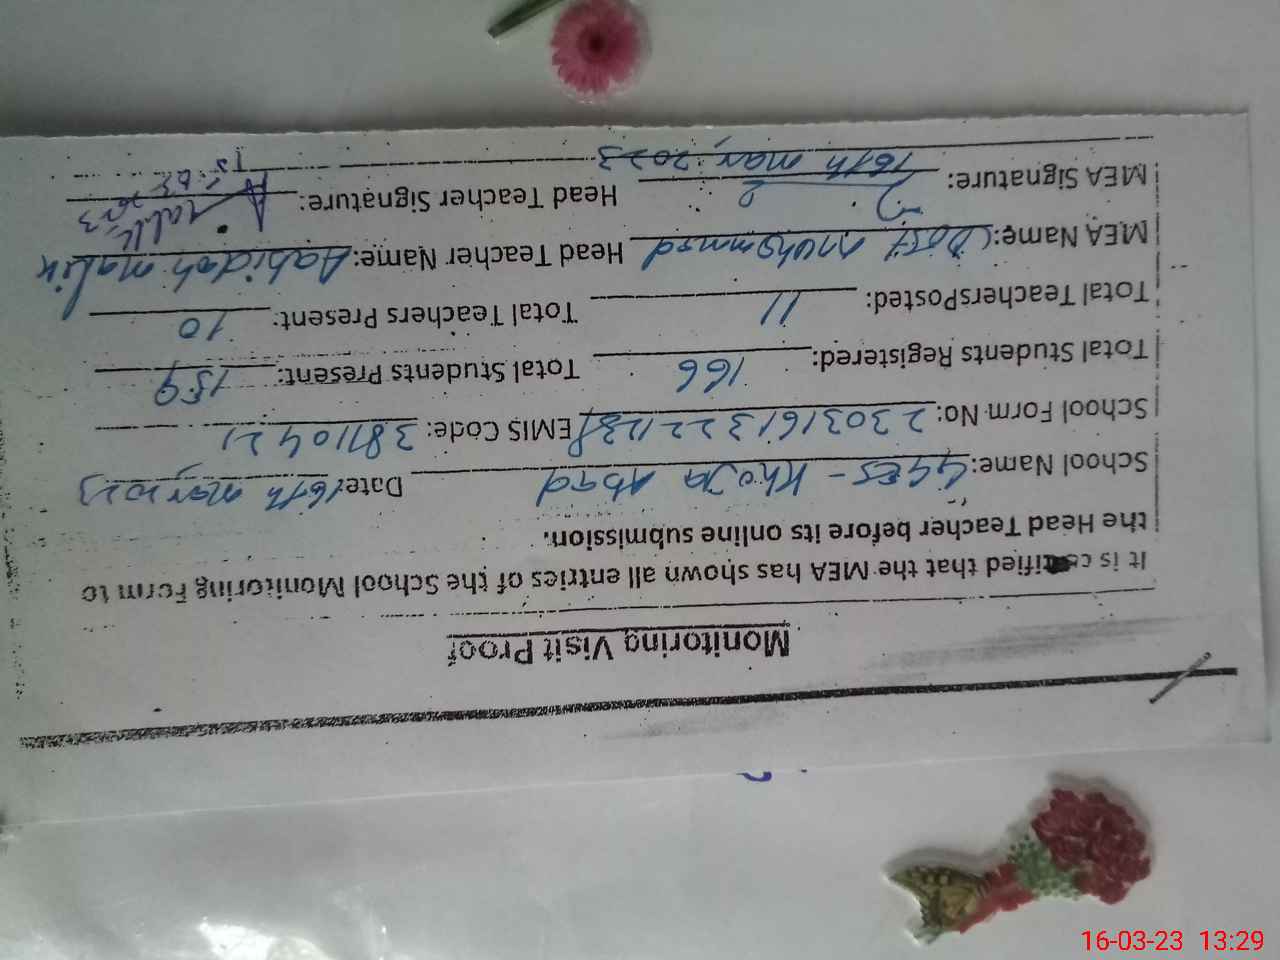 Monitoring Visit Proof
It is certified that the MEA has shown all entries of the School Monitoring Form to
the Head Teacher before its online submission.
School Name: GGES - Khoja Abad Date: 16th mar 2023
School Form No: EMIS Code: 38110421
Total Students Registered: 166 Total Students Present: 159
Total TeachersPosted: 11 Total Teachers Present: 10
MEA Name: Dost Muhammad Head Teacher Name: Aabidah malik
MEA Signature: Head Teacher Signature:
16th mar, 2023
16-03-23 13:29